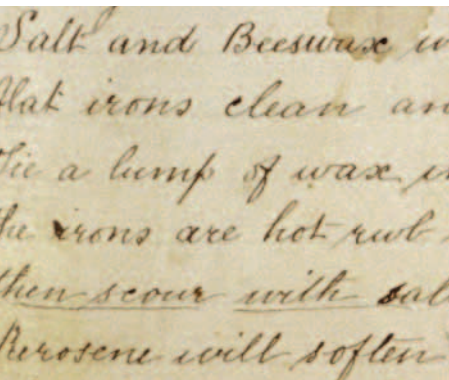 Salt and Beeswax w
flat irons clean an
Tie a lump of wax in
The irons are hot rub
then scour with sal
Kerosene will soften